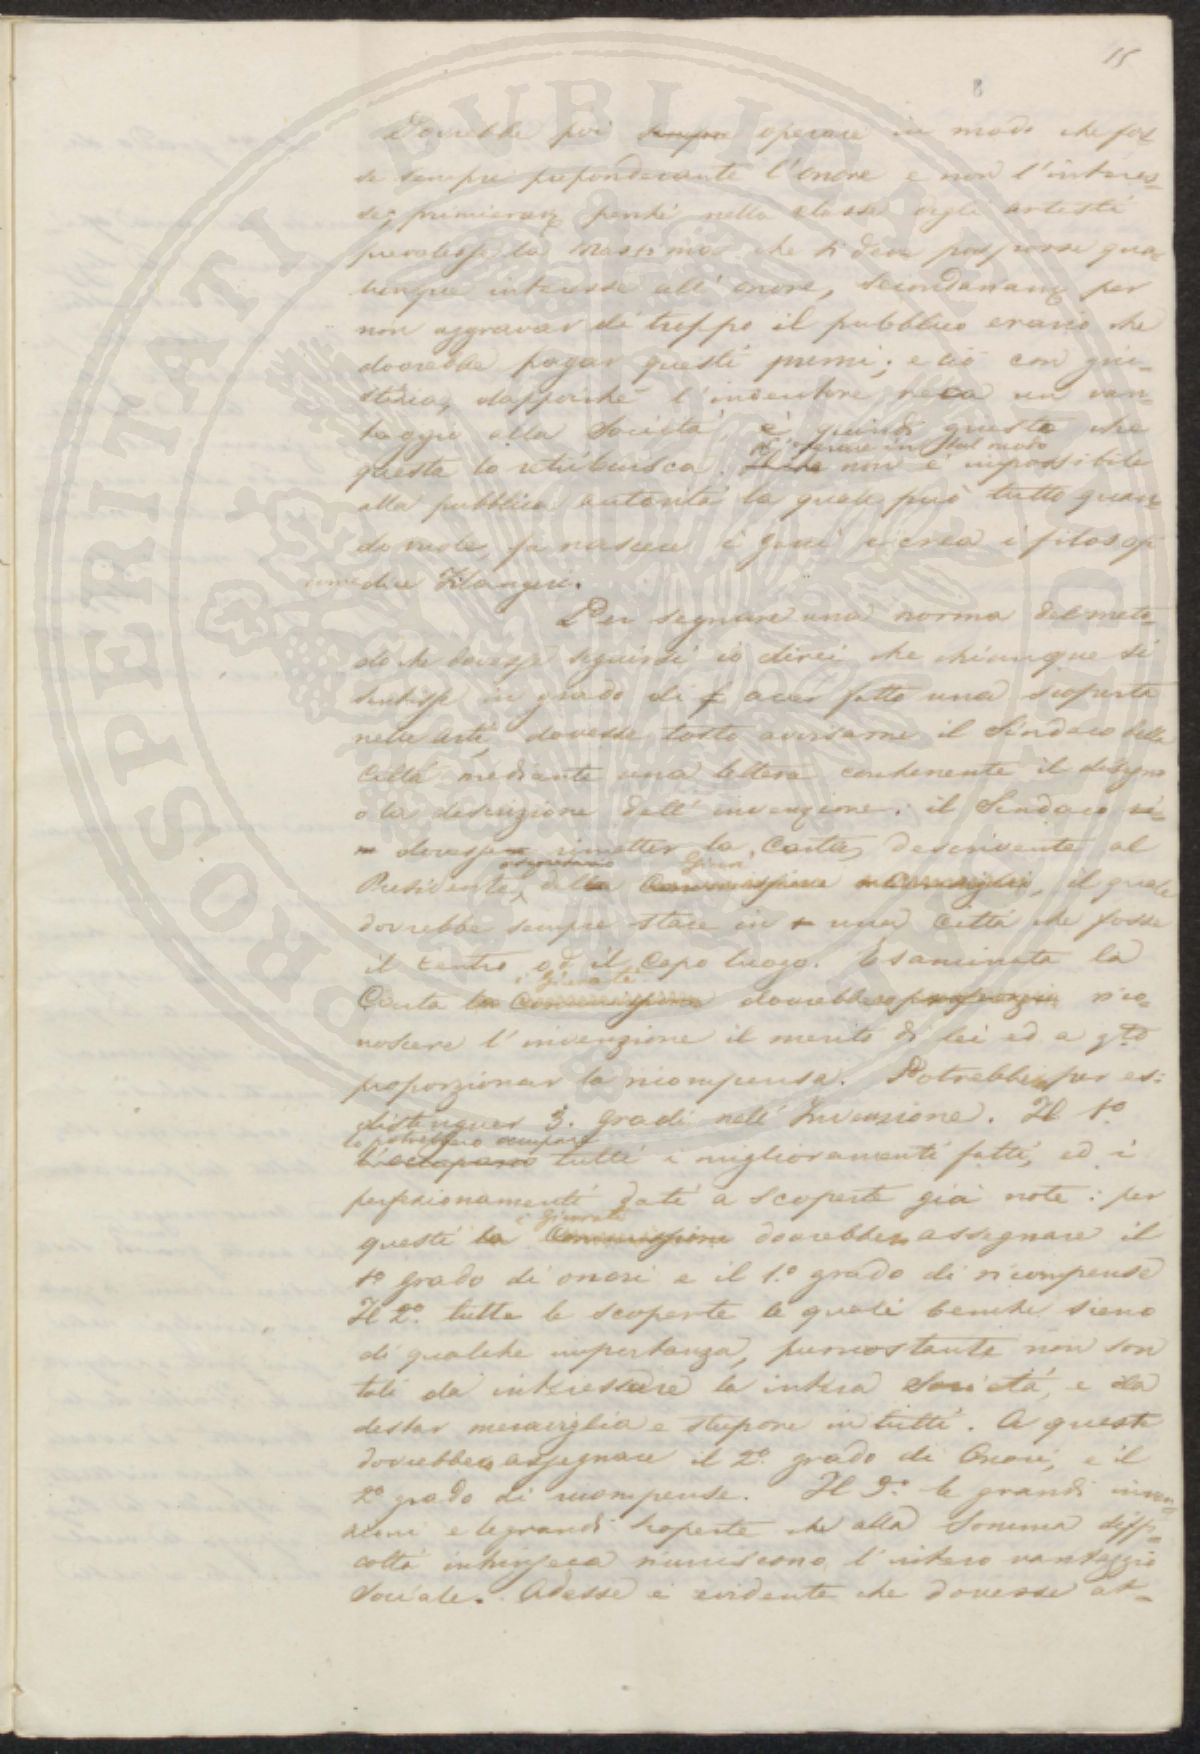 15
Dovrebbe poi sempre operare in modo che fos=
se sempre preponderante l'onore e non l'interes=
se; primieram. perché nella classe degli artisti
prevalesse la massima che si deve posporre qua=
lunque interesse all'onore, secondariam. per
non aggravar di troppo il pubblico erario che
dovrebbe pagar questi premi; e ciò con giu=
stizia, dappoiché l'inventore reca un van=
taggio alla Società, è quindi giusto che
questa lo retribuisca.
in tal modo
non è impossibile
alla pubblica autorità la quale può tutto quan=
do vuole fa nascere i genî e crea i filosofi
come dice Filangeri.
Per segnare una norma del meto=
do che dovesse seguirsi io direi che chiunque si
sentisse in grado di aver fatto una scoperta
nelle arti, dovesse tosto avvisarne il Sindaco della
Città mediante una lettera contenente il disegno
o la descrizione dell'invenzione: il Sindaco
dovesse rimetter la Carta, descrivente al
Presidente, della Commissione, il quale
dovrebbe sempre stare in una Città che fosse
il centro od il Capo luogo. Esaminata la
i Giurati
Carta la Commissione dovrebbero rico=
noscere l'invenzione il merito di lei ed a q.to
proporzionar la ricompensa. Potrebbero per es:
distinguer 3. gradi nell'Invenzione. Il 1.o
lo potrebbero occupare
l'occupano tutti i miglioramenti fatti, ed i
perfezionamenti dati a scoperte già note: per
i Giurati
questi la Commissione dovrebbero assegnare il
1.o grado di onori e il 1.o grado di ricompense
Il 2.o tutte le scoperte le quali benché sieno
di qualche importanza, pur nonostante non son
tali da interessare la intera Società, e da
destar meraviglia e stupore in tutti. A queste
dovrebbero assegnare il 2.o grado di Onori, e il
2.o grado di ricompense. Il 3.o le grandi inven=
zioni e le grandi scoperte che alla Somma diffi=
coltà intrinseca riuniscono l'intero vantaggio
Sociale. Adesso è evidente che dovesse as=
PROSPERITATI PVBLICAE